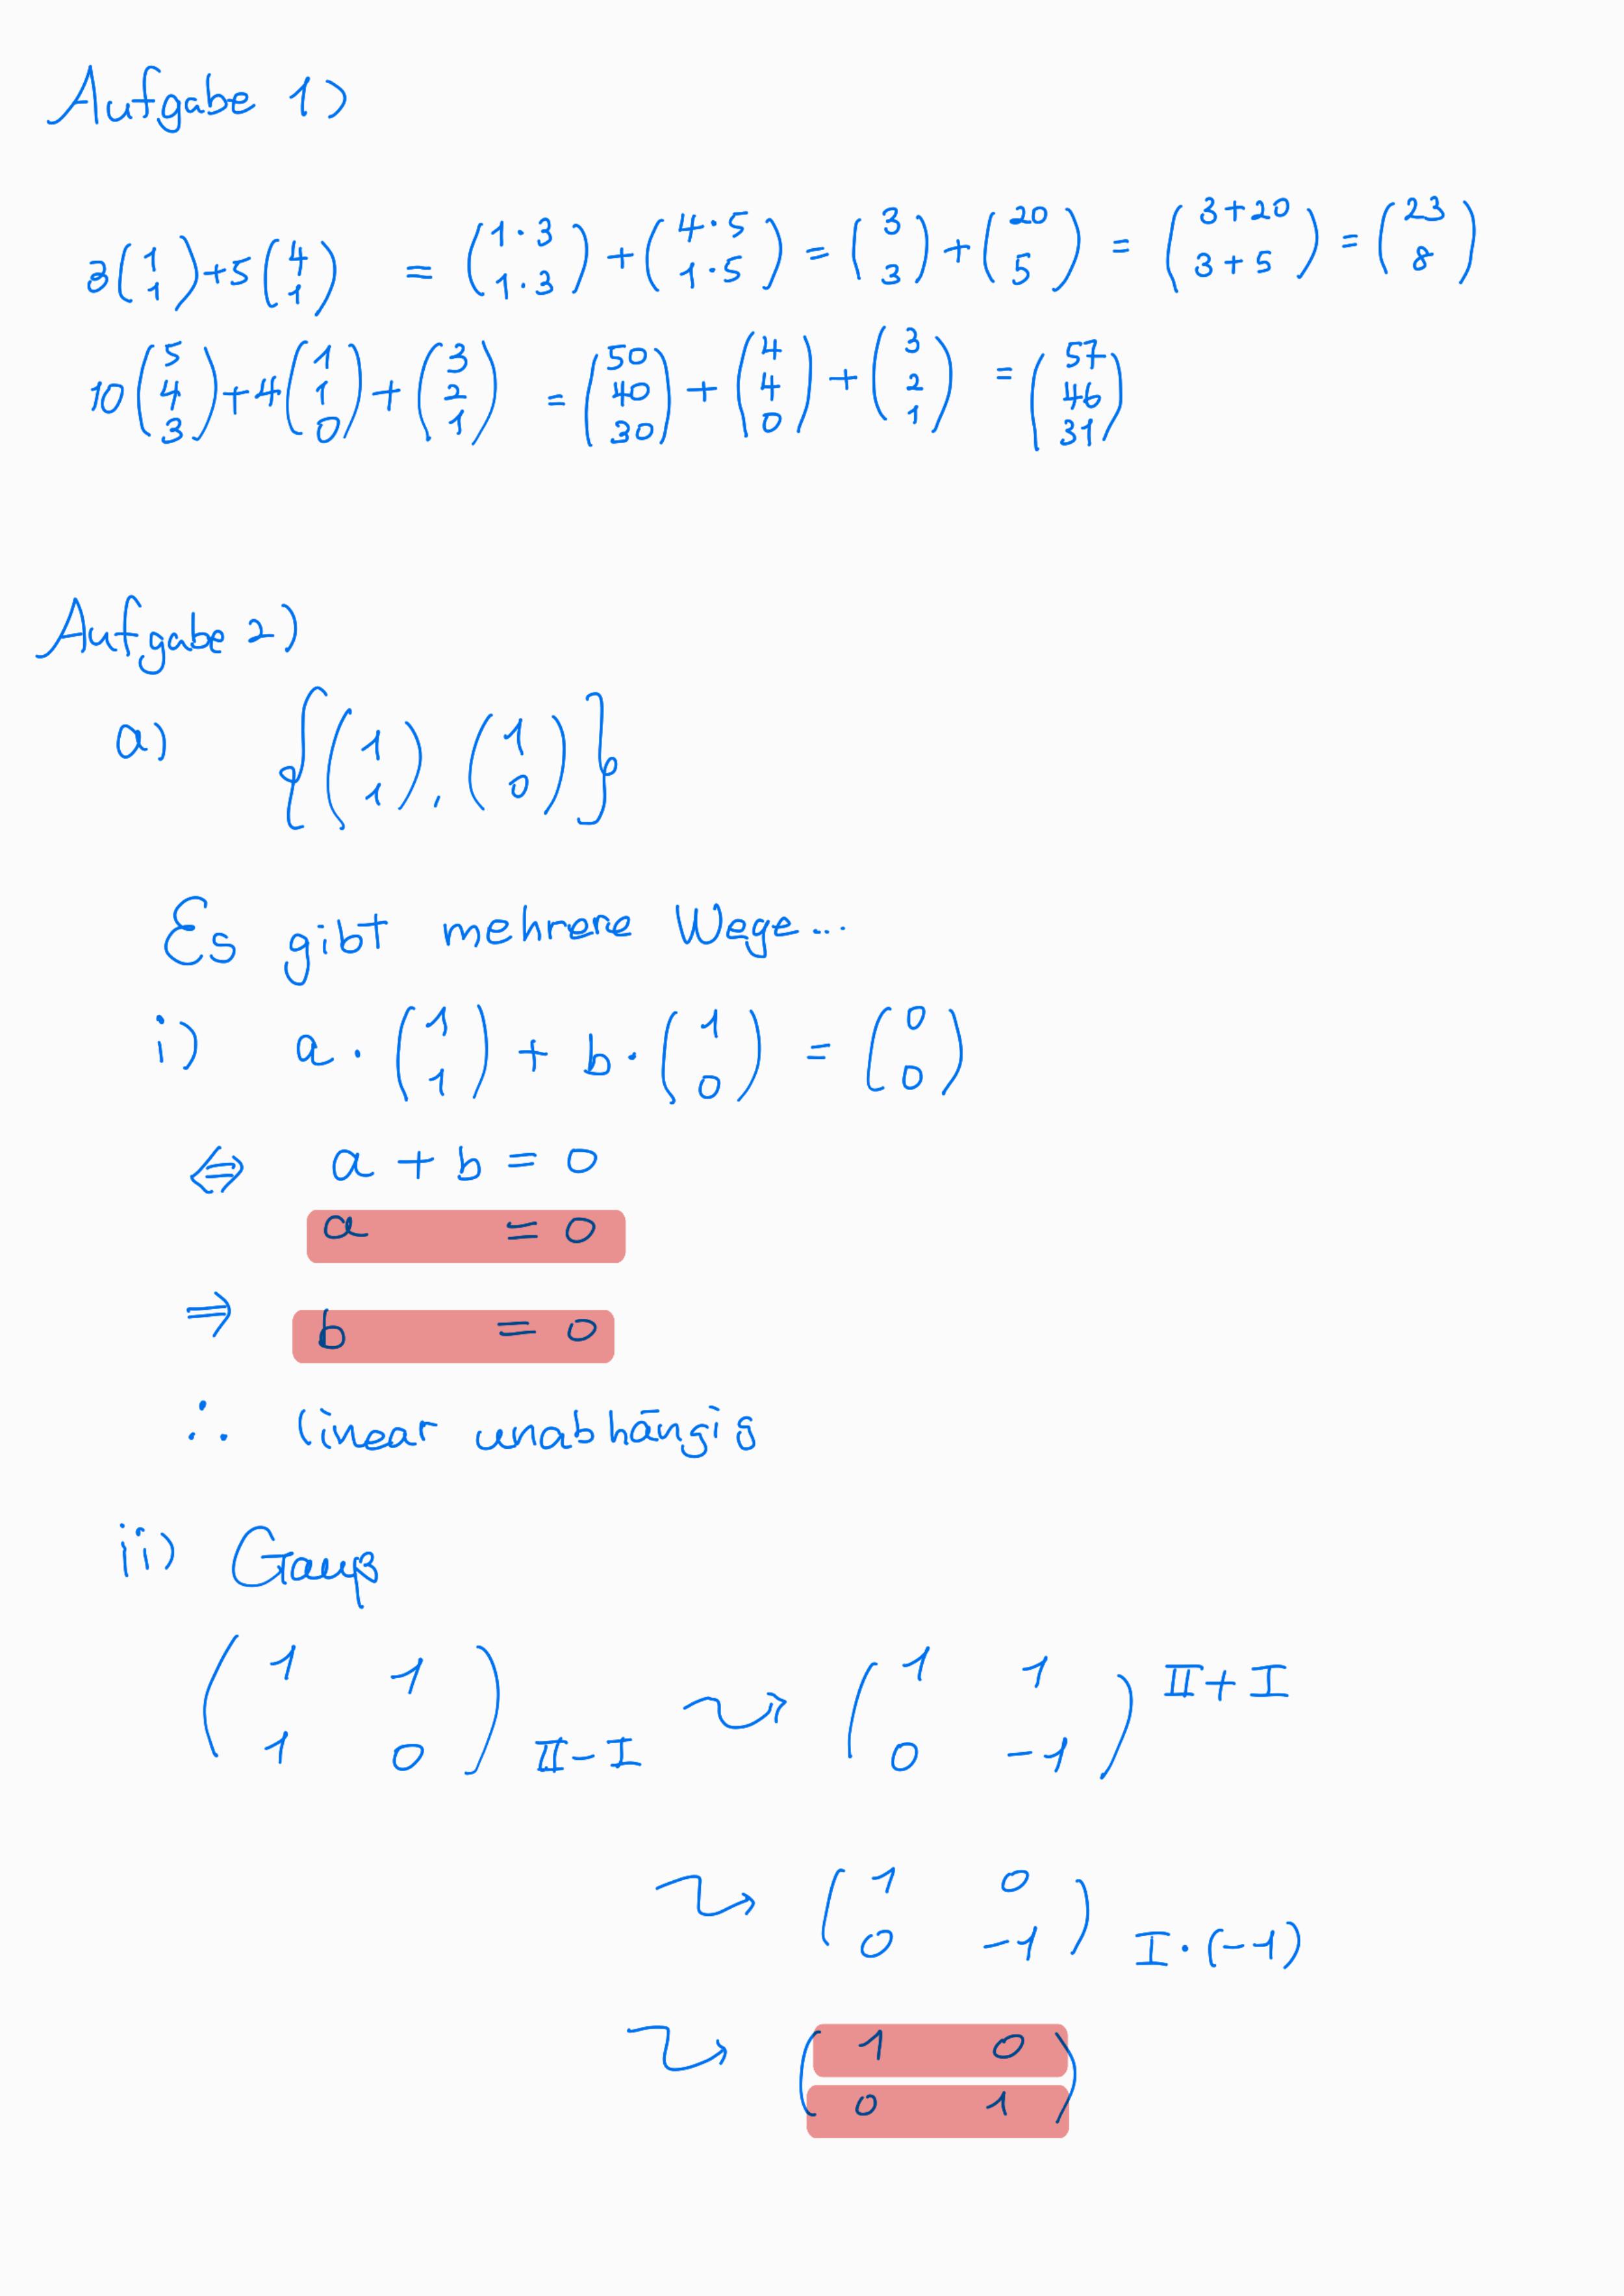 Aufgabe 1)
3 (1 1) + 5 (4 1) = (1·3 1·3) + (4·5 1·5) = (3 3) + (20 5) = (3+20 3+5) = (23 8)
10 (5 4 3) + 4 (1 1 0) + (3 2 1) = (50 40 30) + (4 4 0) + (3 2 1) = (57 46 31)
Aufgabe 2)
a) {(1 1), (1 0)}
Es gibt mehrere Wege...
i) a · (1 1) + b · (1 0) = (0 0)
⇔ a + b = 0
a = 0
⇒ b = 0
∴ linear unabhängig
ii) Gauß
(1 1 1 0) II-I ⇝ (1 1 0 -1) II+I
⇝ (1 0 0 -1) I·(-1)
⇝ (1 0 0 1)